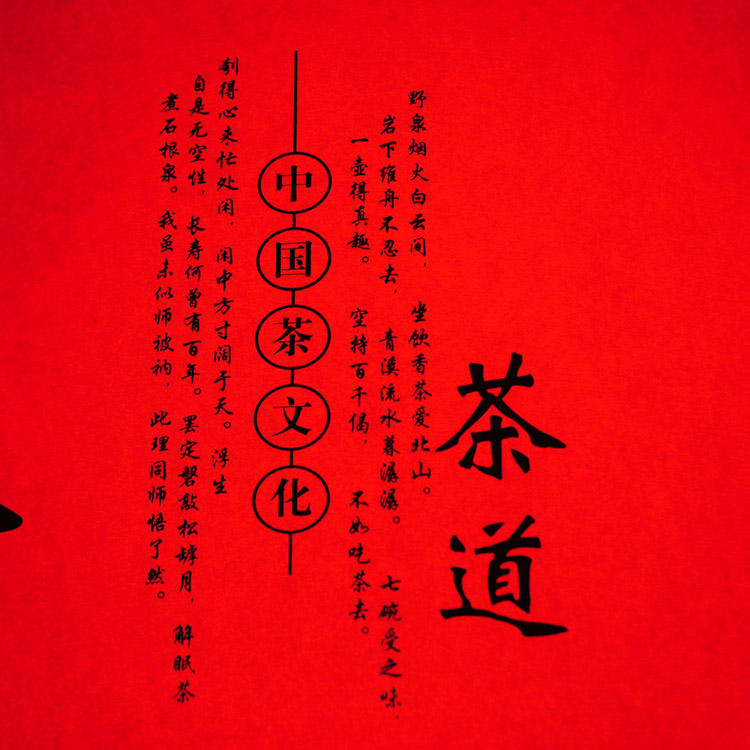 茶道
野泉烟火白云间，坐饮香茶爱北山。
岩下维舟不忍去，青溪流水暮潺潺。七碗受之味，
一壶得真趣。空持百千偈，不如吃茶去。
中国茶文化
刳得心来忙处闲，闲中方寸阔于天。浮生
自是无空性，长寿何曾有百年。罢定磬敲松罅月，解眠茶
煮石根泉。我虽未似师被衲，此理同师悟了然。